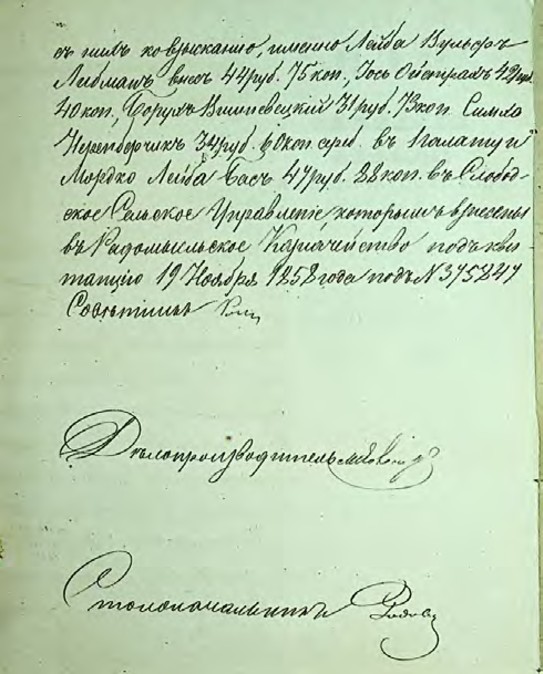 съ нихъ ко взысканію, именно Лейба Вульфъ
Либманъ внесъ 44 руб. 75 коп., Іось Ойстрахъ 42 руб.
40 коп., Борухъ Вишневецкій 31 руб. 73 коп. Симха
34 руб. 60 коп. сереб. въ Палату и
Мордко Лейба Басъ 47 руб. 88 коп. въ Слобод-
ское Сельское Управленіе которымъ внесены
въ Радомысльское Казначейство подъ кви-
танцію 19 Ноября 1858 года подъ N 375847
Совѣтникъ
Дѣлопроизводитель
Столоначальникъ